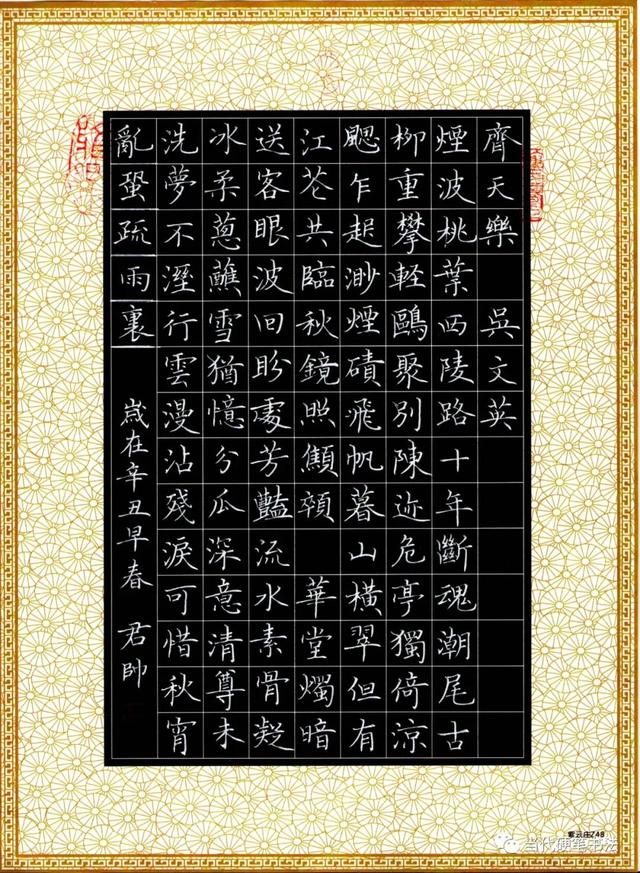 齊天樂 吳文英
煙波桃葉西陵路十年斷魂潮尾古
柳重攀輕鷗聚別陳迹危亭獨倚涼
颸乍起渺煙磧飛帆暮山橫翠但有
江花共臨秋鏡照顦顇 華堂燭暗
送客眼波回盼處芳豔流水素骨凝
冰柔蔥蘸雪猶憶分瓜深意清尊未
洗夢不溼行雲漫沾殘淚可惜秋宵
亂蛩疏雨裏
歲在辛丑早春 君帥
当代硬笔书法